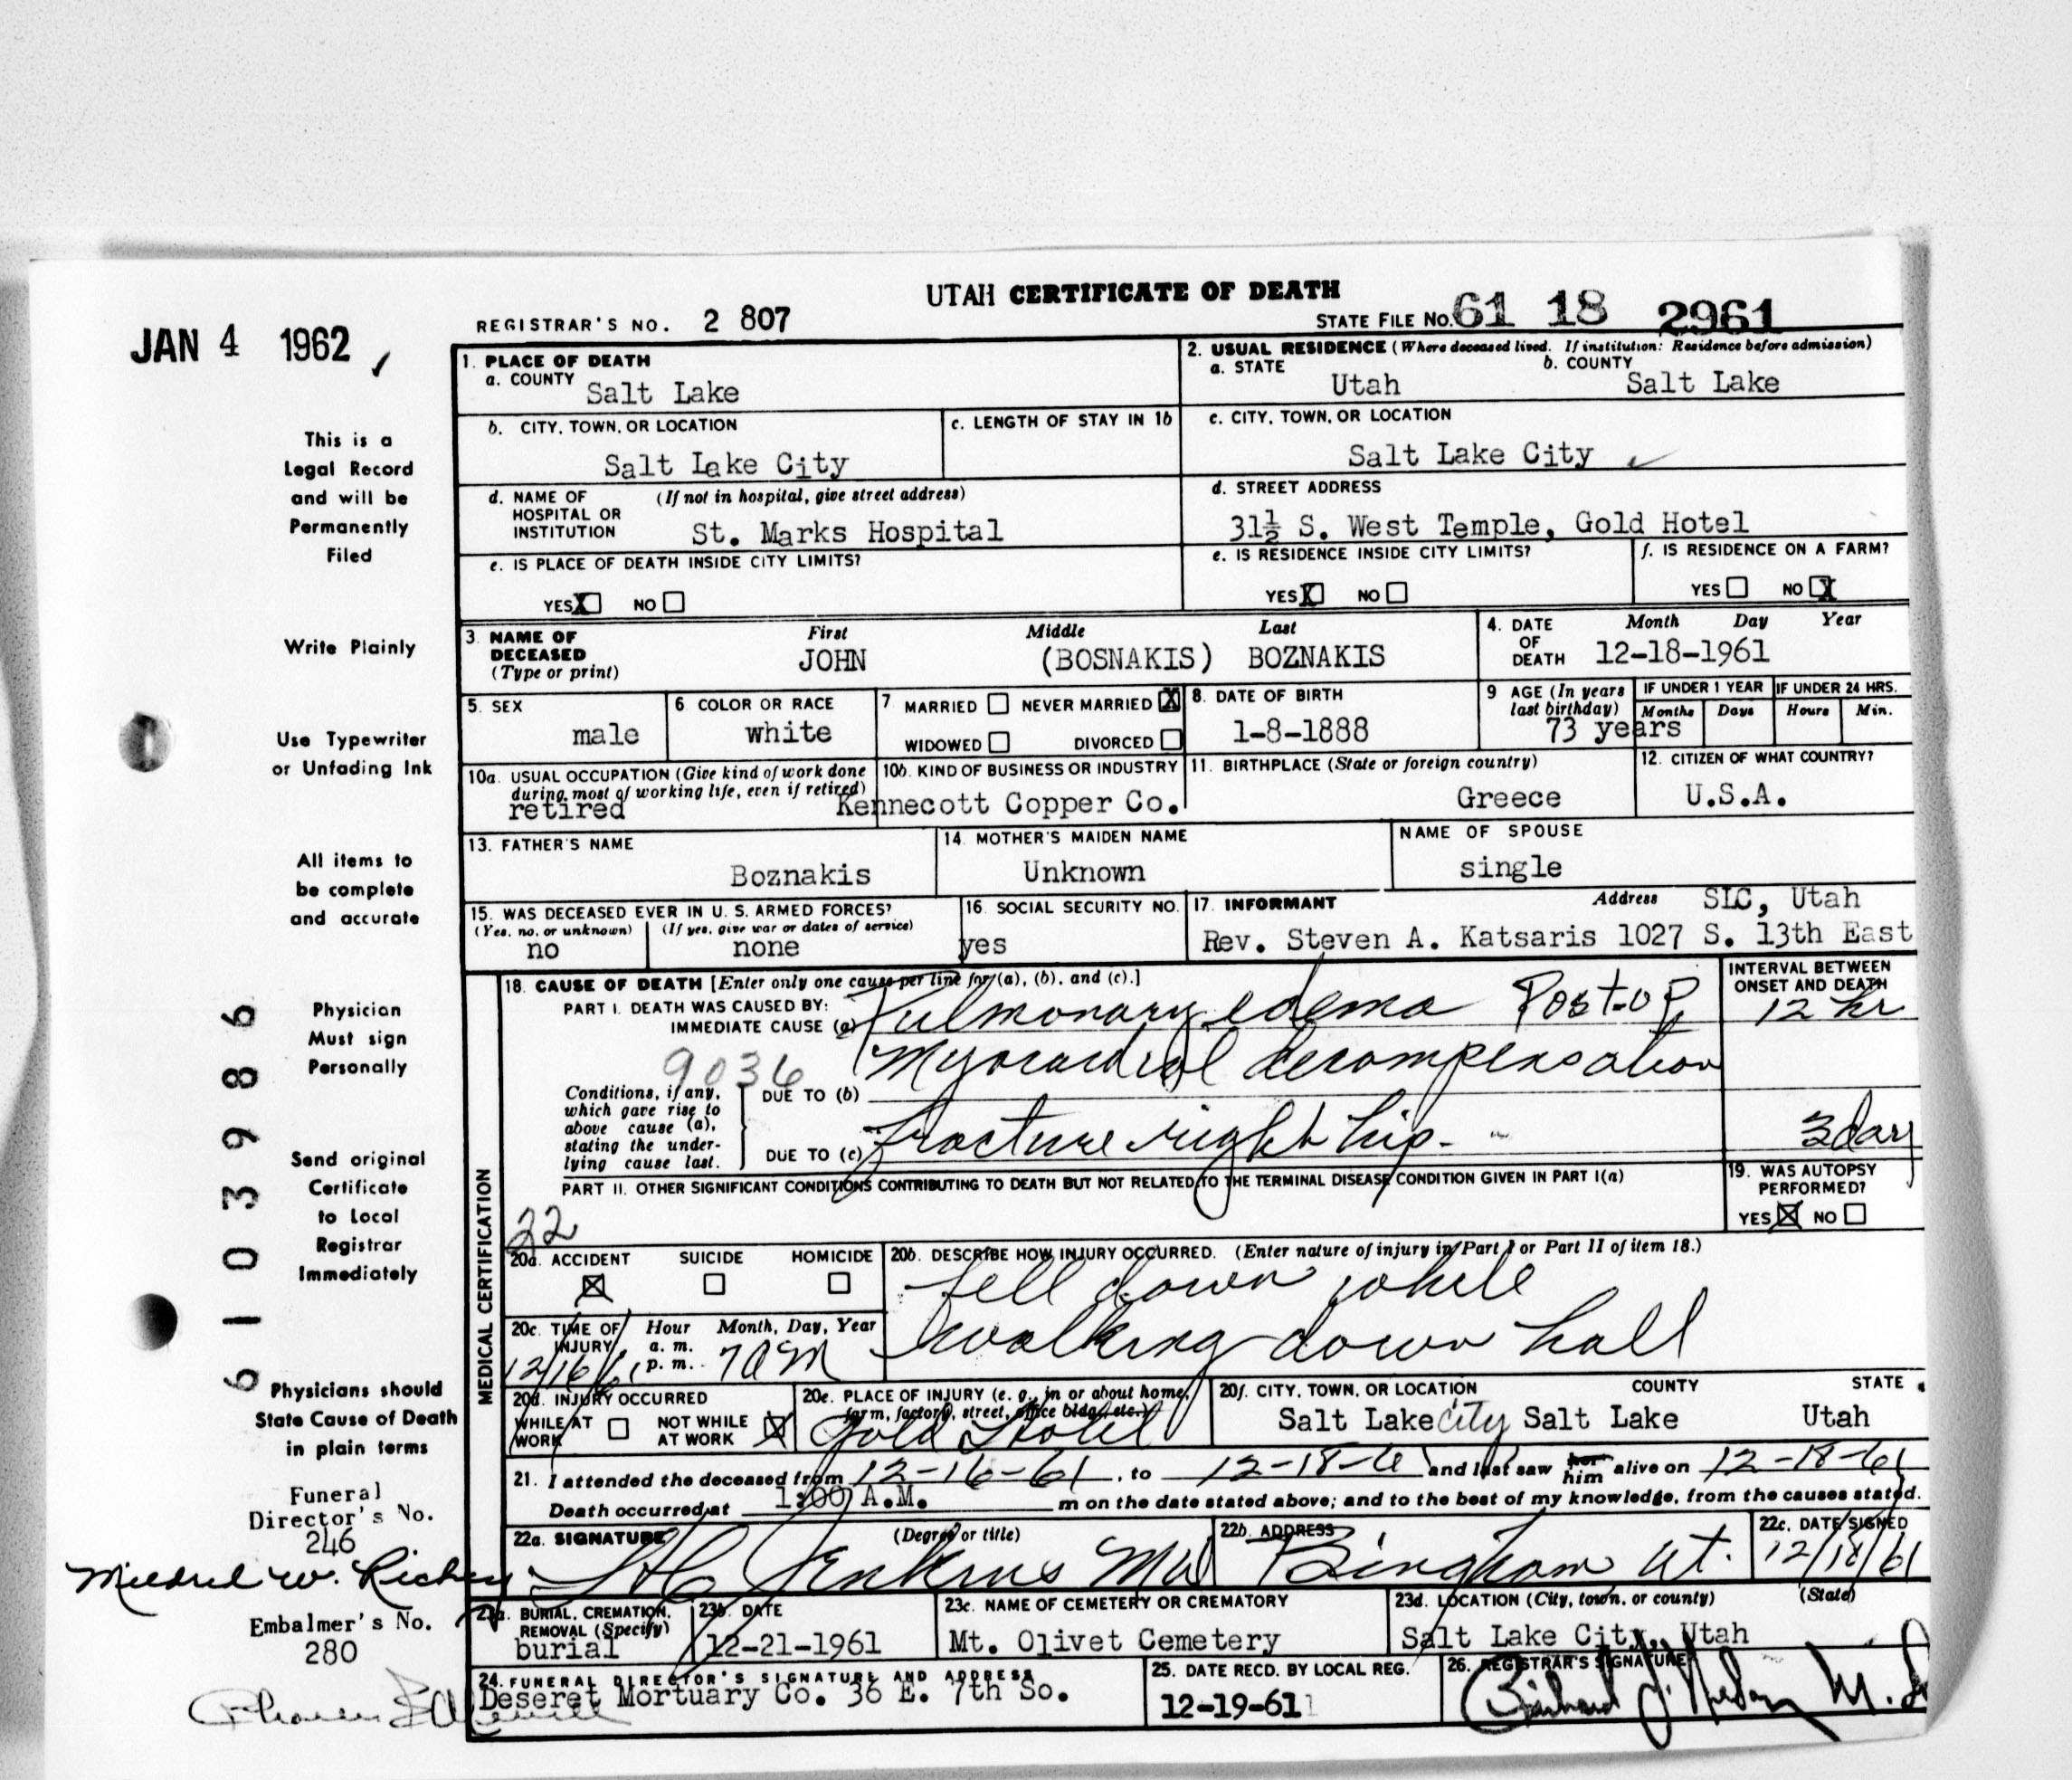 UTAH CERTIFICATE OF DEATH
JAN 4 1962
REGISTRAR'S NO. 2 807
STATE FILE NO. 61 18 2961
This is a
Legal Record
and will be
Permanently
Filed
Write Plainly
Use Typewriter
or Unfading Ink
All items to
be complete
and accurate
Physician
Must sign
Personally
Send original
Certificate
to Local
Registrar
Immediately
Physicians should
State Cause of Death
in plain terms
Funeral
Director's No.
246
Mildred W. Richey
Embalmer's No.
280
61039 86
1. PLACE OF DEATH
a. COUNTY Salt Lake
b. CITY, TOWN, OR LOCATION
Salt Lake City
c. LENGTH OF STAY IN 1b
d. NAME OF HOSPITAL OR INSTITUTION (If not in hospital, give street address)
St. Marks Hospital
e. IS PLACE OF DEATH INSIDE CITY LIMITS?
YES X NO
2. USUAL RESIDENCE (Where deceased lived. If institution: Residence before admission)
a. STATE Utah b. COUNTY Salt Lake
c. CITY, TOWN, OR LOCATION
Salt Lake City
d. STREET ADDRESS
31½ S. West Temple, Gold Hotel
e. IS RESIDENCE INSIDE CITY LIMITS?
YES X NO
f. IS RESIDENCE ON A FARM?
YES NO X
3. NAME OF DECEASED (Type or print)
First Middle Last
JOHN (BOSNAKIS) BOZNAKIS
4. DATE OF DEATH Month Day Year
12-18-1961
5. SEX
male
6. COLOR OR RACE
white
7 MARRIED NEVER MARRIED X
WIDOWED DIVORCED
8. DATE OF BIRTH
1-8-1888
9 AGE (In years last birthday)
73 years
IF UNDER 1 YEAR
Months Days
IF UNDER 24 HRS.
Hours Min.
10a. USUAL OCCUPATION (Give kind of work done
during most of working life, even if retired)
retired
10b. KIND OF BUSINESS OR INDUSTRY
Kennecott Copper Co.
11. BIRTHPLACE (State or foreign country)
Greece
12. CITIZEN OF WHAT COUNTRY?
U.S.A.
13. FATHER'S NAME
Boznakis
14. MOTHER'S MAIDEN NAME
Unknown
NAME OF SPOUSE
single
15. WAS DECEASED EVER IN U. S. ARMED FORCES?
(Yes, no, or unknown) (If yes, give war or dates of service)
no none
16. SOCIAL SECURITY NO.
yes
17. INFORMANT Address SLC, Utah
Rev. Steven A. Katsaris 1027 S. 13th East
MEDICAL CERTIFICATION
18. CAUSE OF DEATH [Enter only one cause per line for (a), (b), and (c).]
PART I. DEATH WAS CAUSED BY:
IMMEDIATE CAUSE (a) Pulmonary edema Post-op
Myocardial decompensation
9036
Conditions, if any,
which gave rise to
above cause (a),
stating the under-
lying cause last.
DUE TO (b)
DUE TO (c) fracture right hip.
INTERVAL BETWEEN
ONSET AND DEATH
12 hr
3 day
PART II. OTHER SIGNIFICANT CONDITIONS CONTRIBUTING TO DEATH BUT NOT RELATED TO THE TERMINAL DISEASE CONDITION GIVEN IN PART I(a)
22
19. WAS AUTOPSY
PERFORMED?
YES X NO
20a. ACCIDENT X SUICIDE HOMICIDE
20b. DESCRIBE HOW INJURY OCCURRED. (Enter nature of injury in Part I or Part II of item 18.)
fell down while
walking down hall
20c. TIME OF INJURY Hour a. m. p. m. Month, Day, Year
12/16/61 7am
20d. INJURY OCCURRED
WHILE AT WORK NOT WHILE AT WORK X
20e. PLACE OF INJURY (e. g., in or about home,
farm, factory, street, office bldg., etc.)
Gold Hotel
20f. CITY, TOWN, OR LOCATION COUNTY STATE
Salt Lake City Salt Lake Utah
21. I attended the deceased from 12-16-61, to 12-18-61 and last saw her him alive on 12-18-61
Death occurred at 1:00 A.M. m on the date stated above; and to the best of my knowledge, from the causes stated.
22a. SIGNATURE (Degree or title)
Jenkins MD
22b. ADDRESS
Bingham Ut.
22c. DATE SIGNED
12/18/61
23a. BURIAL, CREMATION, REMOVAL (Specify)
burial
23b. DATE
12-21-1961
23c. NAME OF CEMETERY OR CREMATORY
Mt. Olivet Cemetery
23d. LOCATION (City, town, or county) (State)
Salt Lake City, Utah
24. FUNERAL DIRECTOR'S SIGNATURE AND ADDRESS
Deseret Mortuary Co. 36 E. 7th So.
25. DATE RECD. BY LOCAL REG.
12-19-61
26. REGISTRAR'S SIGNATURE